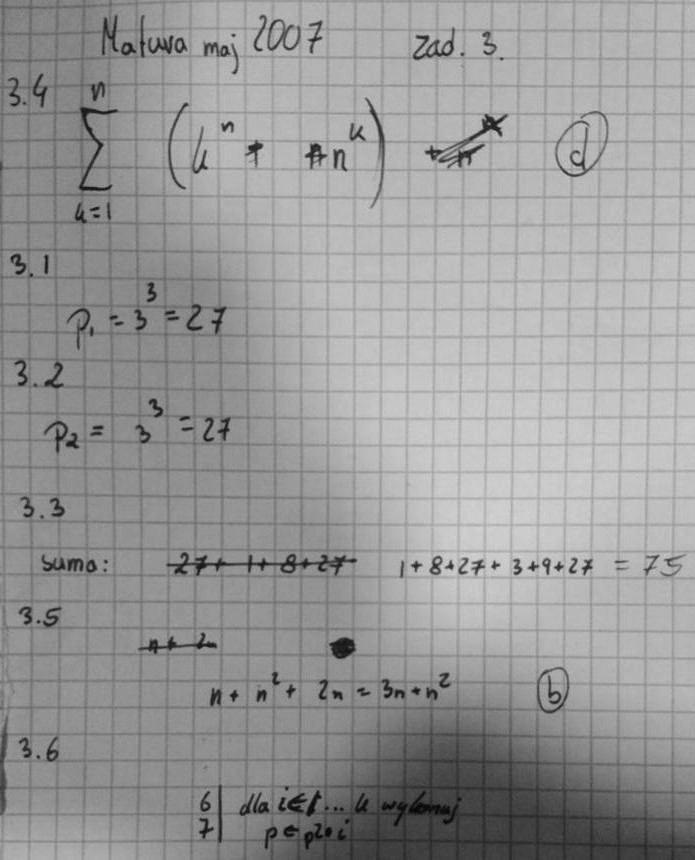 Matura maj 2007 zad. 3.
3.4 n
∑ (k^n + n^k) d
k=1
3.1
p₁ = 3³ = 27
3.2
p₂ = 3³ = 27
3.3
suma: 27+ 1+ 8+27 1+8+27+3+9+27 = 75
3.5
n+ 2n
n + n² + 2n = 3n+n² b
3.6
6 | dla i ← 1... k wykonuj
7 | p ←